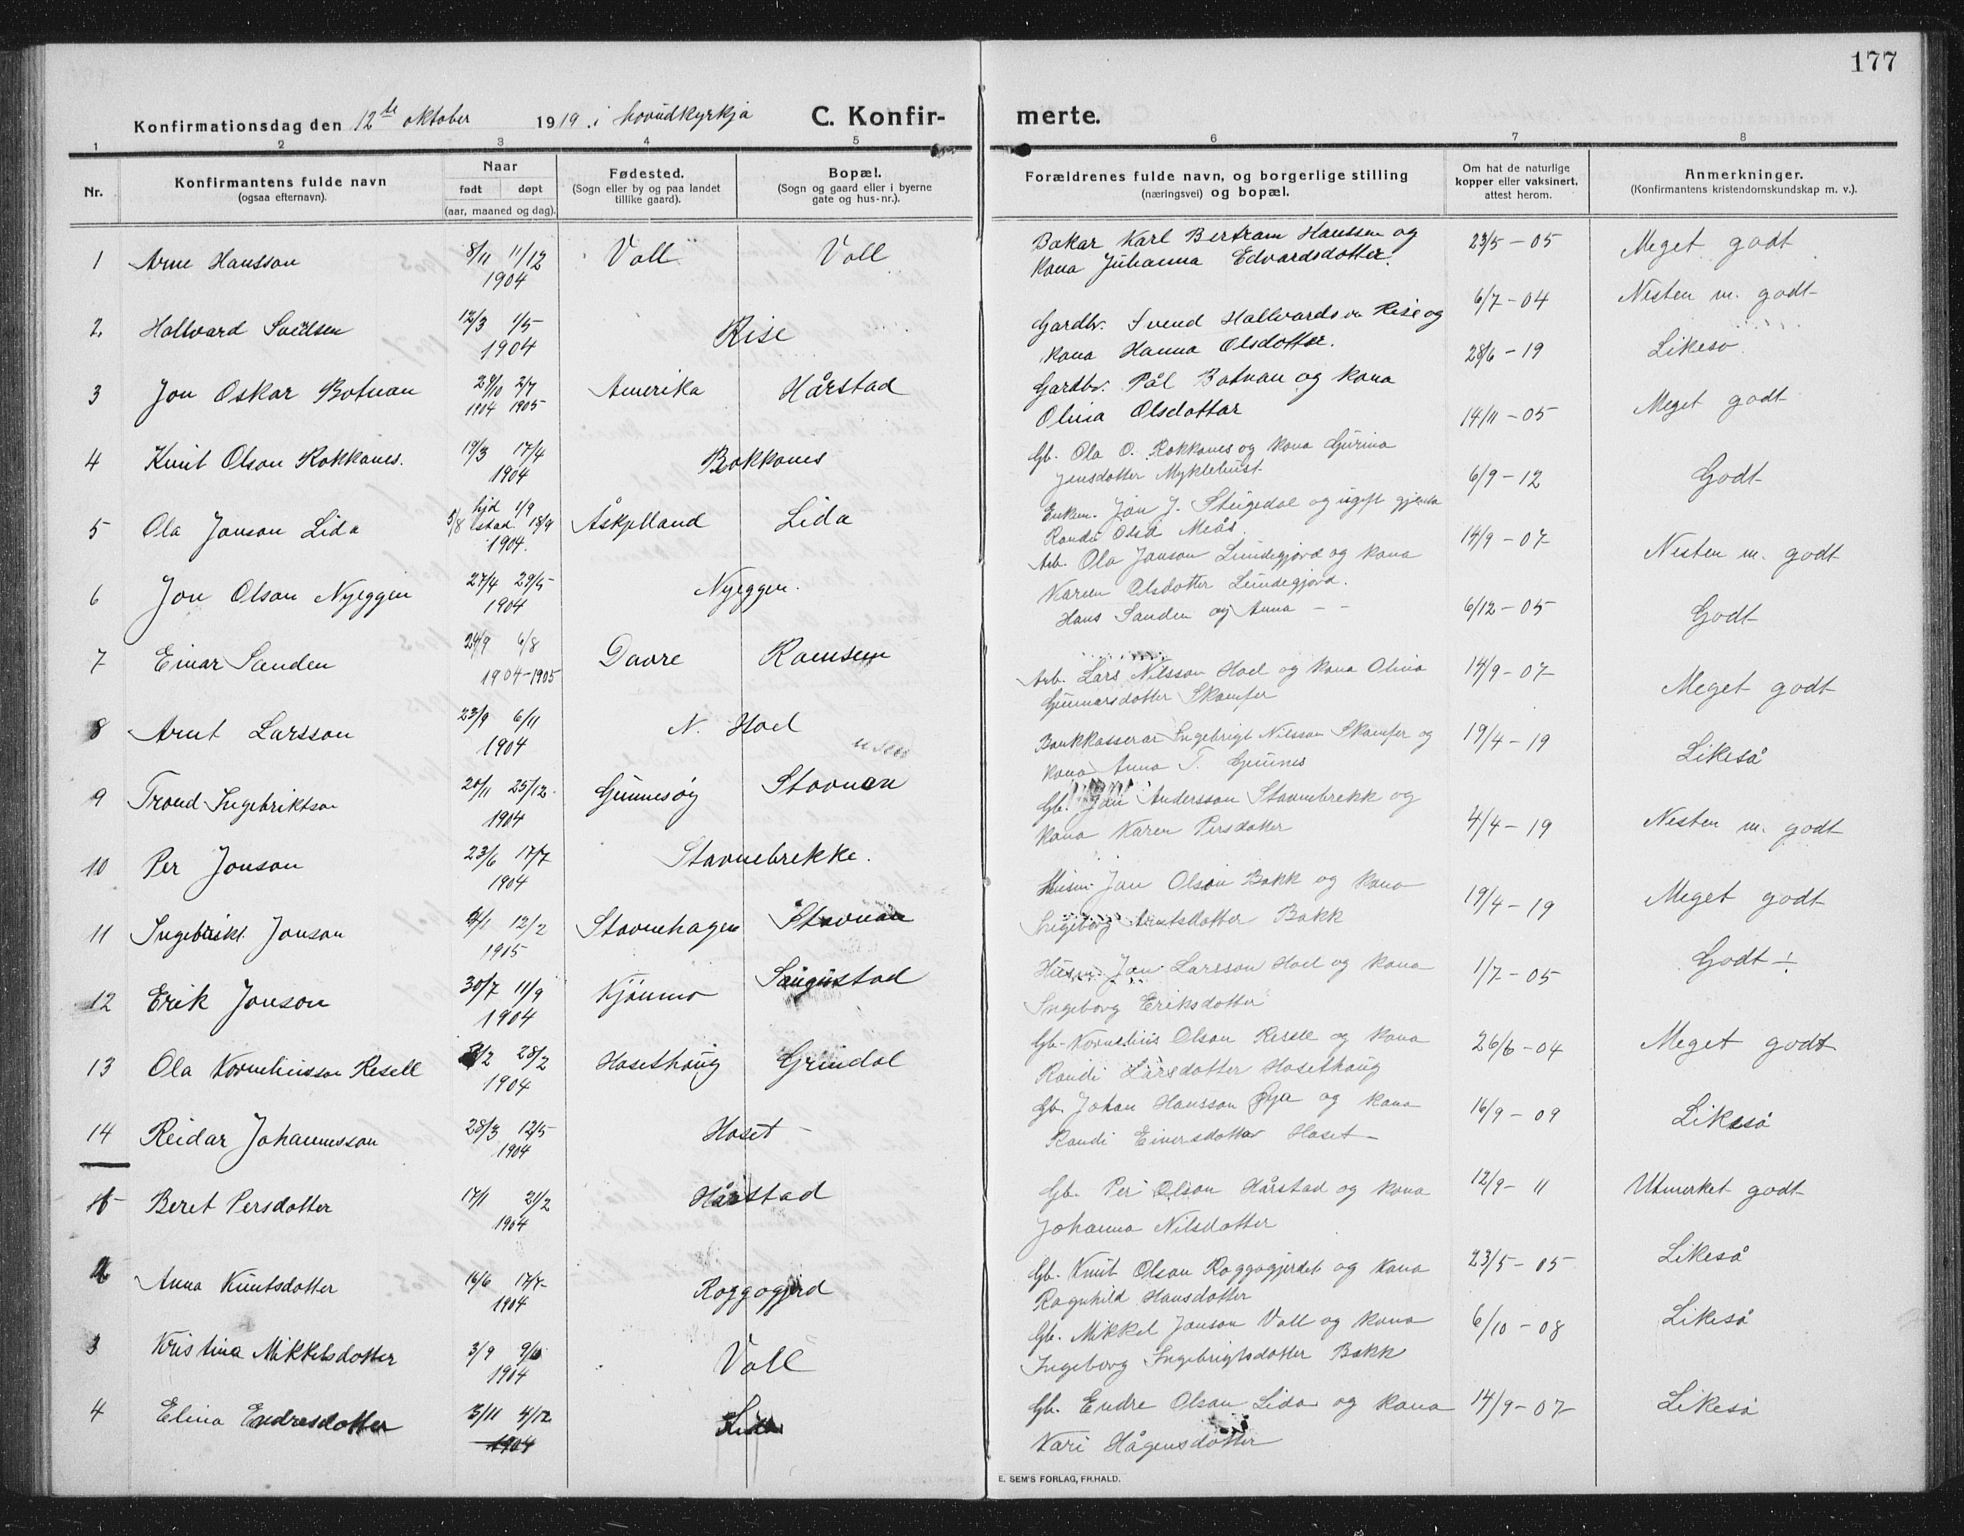 177
Konfirmationsdag den 12te oktober 1919 i hovudkyrkja C. Konfirmerte.
1 2 3 4 5 6 7 8
Nr. Konfirmantens fulde navn (ogsaa efternavn). Naar født døpt (aar, maaned og dag). Fødested. (Sogn eller by og paa landet tillike gaard). Bopæl. (Sogn og gaard eller i byerne gate og hus-nr.). Forældrenes fulde navn, og borgerlige stilling (næringsvei) og bopæl. Om hat de naturlige kopper eller vaksinert, attest herom. Anmerkninger. (Konfirmantens kristendomskundskap m. v.).
1 Arne Hansson 8/11 11/12 1904 Voll Voll Bakar Karl Bertram Hanssen og kona Julianna Edvardsdotter. 23/5-05 Meget godt
2 Hallvard Svendsen 12/3 1/5 1904 Rise Gardbr. Svend Hallvardsen Rise og kona Hanna Olsdotter. 6/7-04 Nesten m. godt
3 Jon Oskar Botnan 29/10 2/7 1904 1905 Amerika Hårstad Gardbr. Pål Botnan og kona Olina Olsdottar 28/6-19 Likeso
4 Knut Olson Rokkones. 19/3 17/4 1904 Rokkones Gb. Ola O. Rokkones og kona Gurina Jensdotter Myklebust 14/11-05 Meget godt
5 Ola Jonson Lida 5/8 hjd 1/9 stad. 18/9 1904. Åskjelland Lida Enkem. Jon J. Stugedal og ugift Randi Olsd Meås 6/9-12 Godt
6 Jon Olson Nyeggen 27/4 29/5 1904 Nyeggen. Arb. Ola Jonson Lundegjord og kona Karen Olsdotter Lundegjord. 14/9-07 Nesten m. godt
7 Einar Sanden 24/9 6/8 1904-1905 Dovre Ramsem Hans Sanden og Anna - - 6/12-05 Godt
8 Arnt Larsson 23/9 6/11 1904 N. Hoel Arb. Lars Nilsson Hoel og kona Olina Gunnarsdotter Skamfer 14/9-07 Meget godt
9 Trond Ingebriktson 20/11 25/12 1904 Gunnesøy Stavnan Bankkasserar Ingebrigt Nilsson Skamfer og kona Anna T. Gunnes 19/4-19 Likeså
10 Per Jonson 23/6 17/7 1904 Stavnebrekke. Gb. Jon Andersson Stavnebrekk og kona Karen Persdotter 4/4-19 Nesten m. godt
11 Ingebrikt Jonson 4/1 12/2 1905 Stavnehagen Stavnan Husm. Jon Olson Bakk og kona Ingeborg Arntsdotter Bakk 19/4-19 Meget godt
12 Erik Jonson 30/7 11/9 1904 Kjønmo Saugustad Husm. Jon Larsson Hoel og kona Ingeborg Eriksdotter 1/7-05 Godt ÷
13 Ola Korneliusson Resell 3/2 28/2 1904 Hosethaug Grindal Gb. Kornelius Olson Resell og kona Randi Larsdotter Hosethaug 26/6-04 Meget godt
14 Reidar Johannesson 28/3 12/5 1904 Hoset Gb. Johan Hansson Øya og kona Randi Einersdotter Hoset 16/9-09 Likeså
1 Beret Persdotter 17/1 21/2 1904 Hårstad Gb. Per Olson Hårstad og kona Johanna Nilsdotter 12/9-11 Utmerket godt
2 Anna Knutsdotter 16/6 17/7 1904 Roggogjerd Gb. Knut Olson Roggogjerdet og kona Ragnhild Hansdotter 23/5-05 Likeså
3 Kristina Mikkelsdotter 3/9 9/6 1904 Voll Gb. Mikkel Jonson Voll og kona Ingeborg Ingebrigtsdotter Bakk 6/10-08 Likeså
4 Elina Endresdotter 3/11 4/12 1904 Lida Gb. Endre Olson Lida og kona Kari Hågensdotter 14/9-07 Likeså
E. SEM'S FORLAG, FR.HALD.